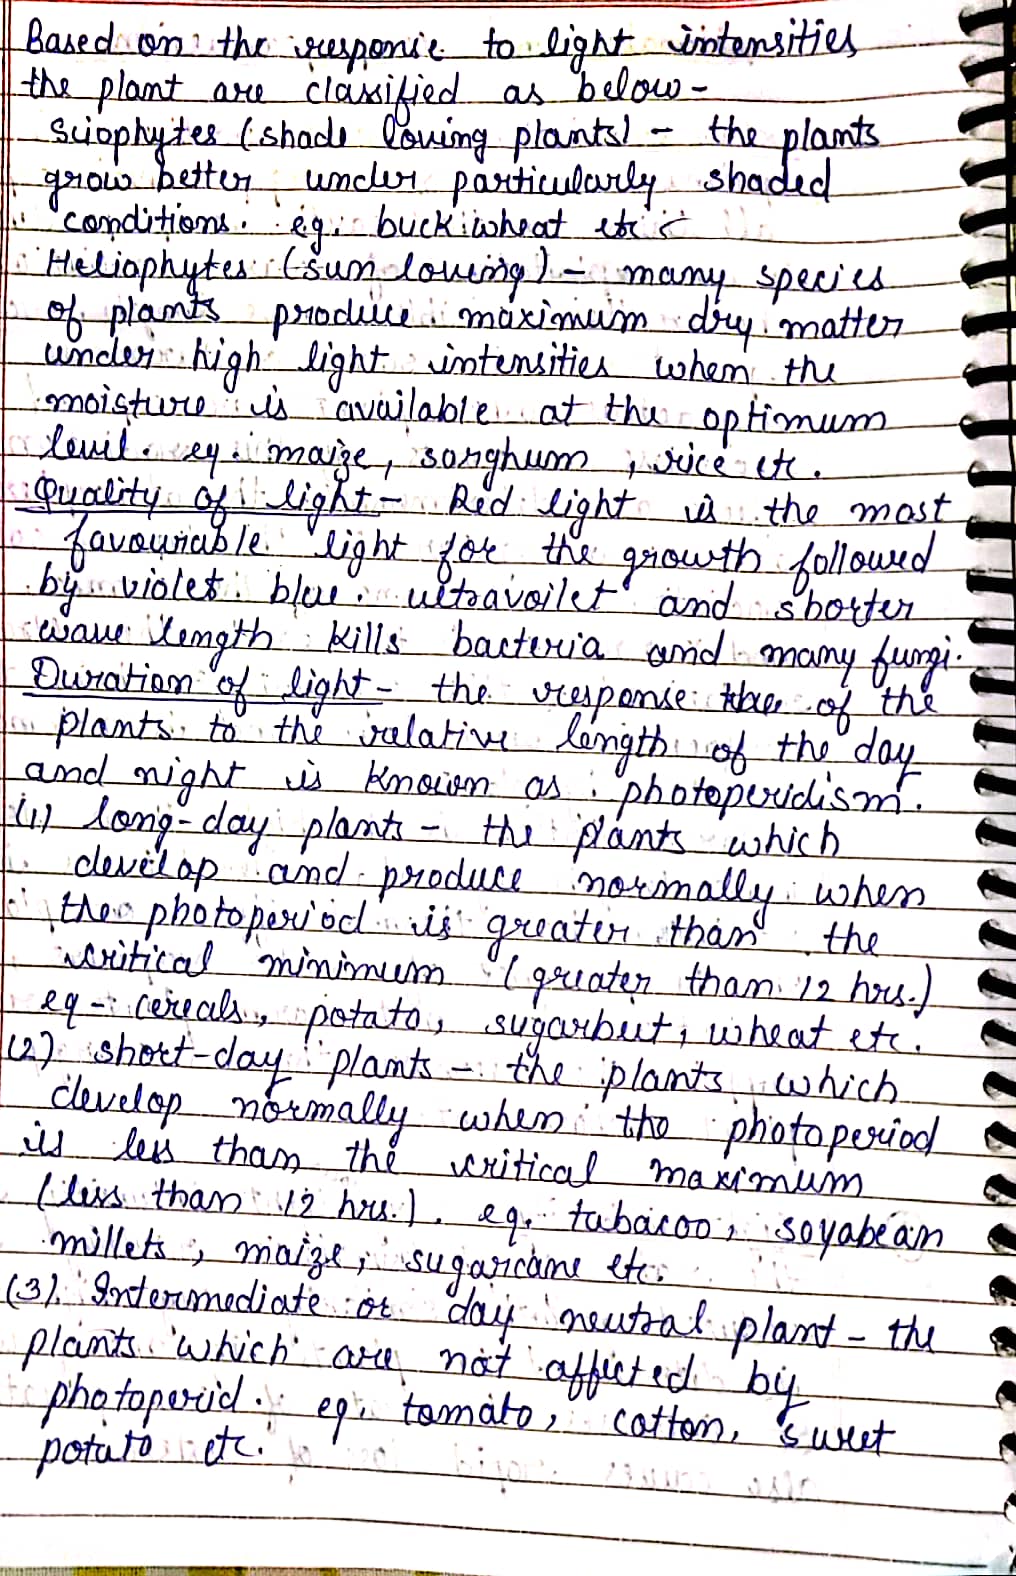 Based on the response to light intensities
the plant are classified as below -
Sciophytes (shade loving plants) - the plants
grow better under particularly shaded
conditions. eg. buck wheat etc
Heliophytes (sun loving) - many species
of plants produce maximum dry matter
under high light intensities when the
moisture is available at the optimum
level. eg. maize, sorghum, rice etc.
Quality of light - Red light is the most
favourable light for the growth followed
by violet blue. ultravoilet and shorter
wave length kills bacteria and many fungi.
Duration of light - the response of the
plants to the relative length of the day
and night is known as photoperidism.
(1) long-day plants - the plants which
develop and produce normally when
the photoperiod is greater than the
critical minimum (greater than 12 hrs.)
eg - cereals, potato, sugarbeet, wheat etc.
(2) short-day plants - the plants which
develop normally when the photoperiod
is less than the critical maximum
(less than 12 hrs.). eg. tabacoo, soyabean
millets, maize, sugarcane etc.
(3). Intermediate or day neutral plant - the
plants which are not affected by
photoperid. eg. tomato, cotton, sweet
potato etc.